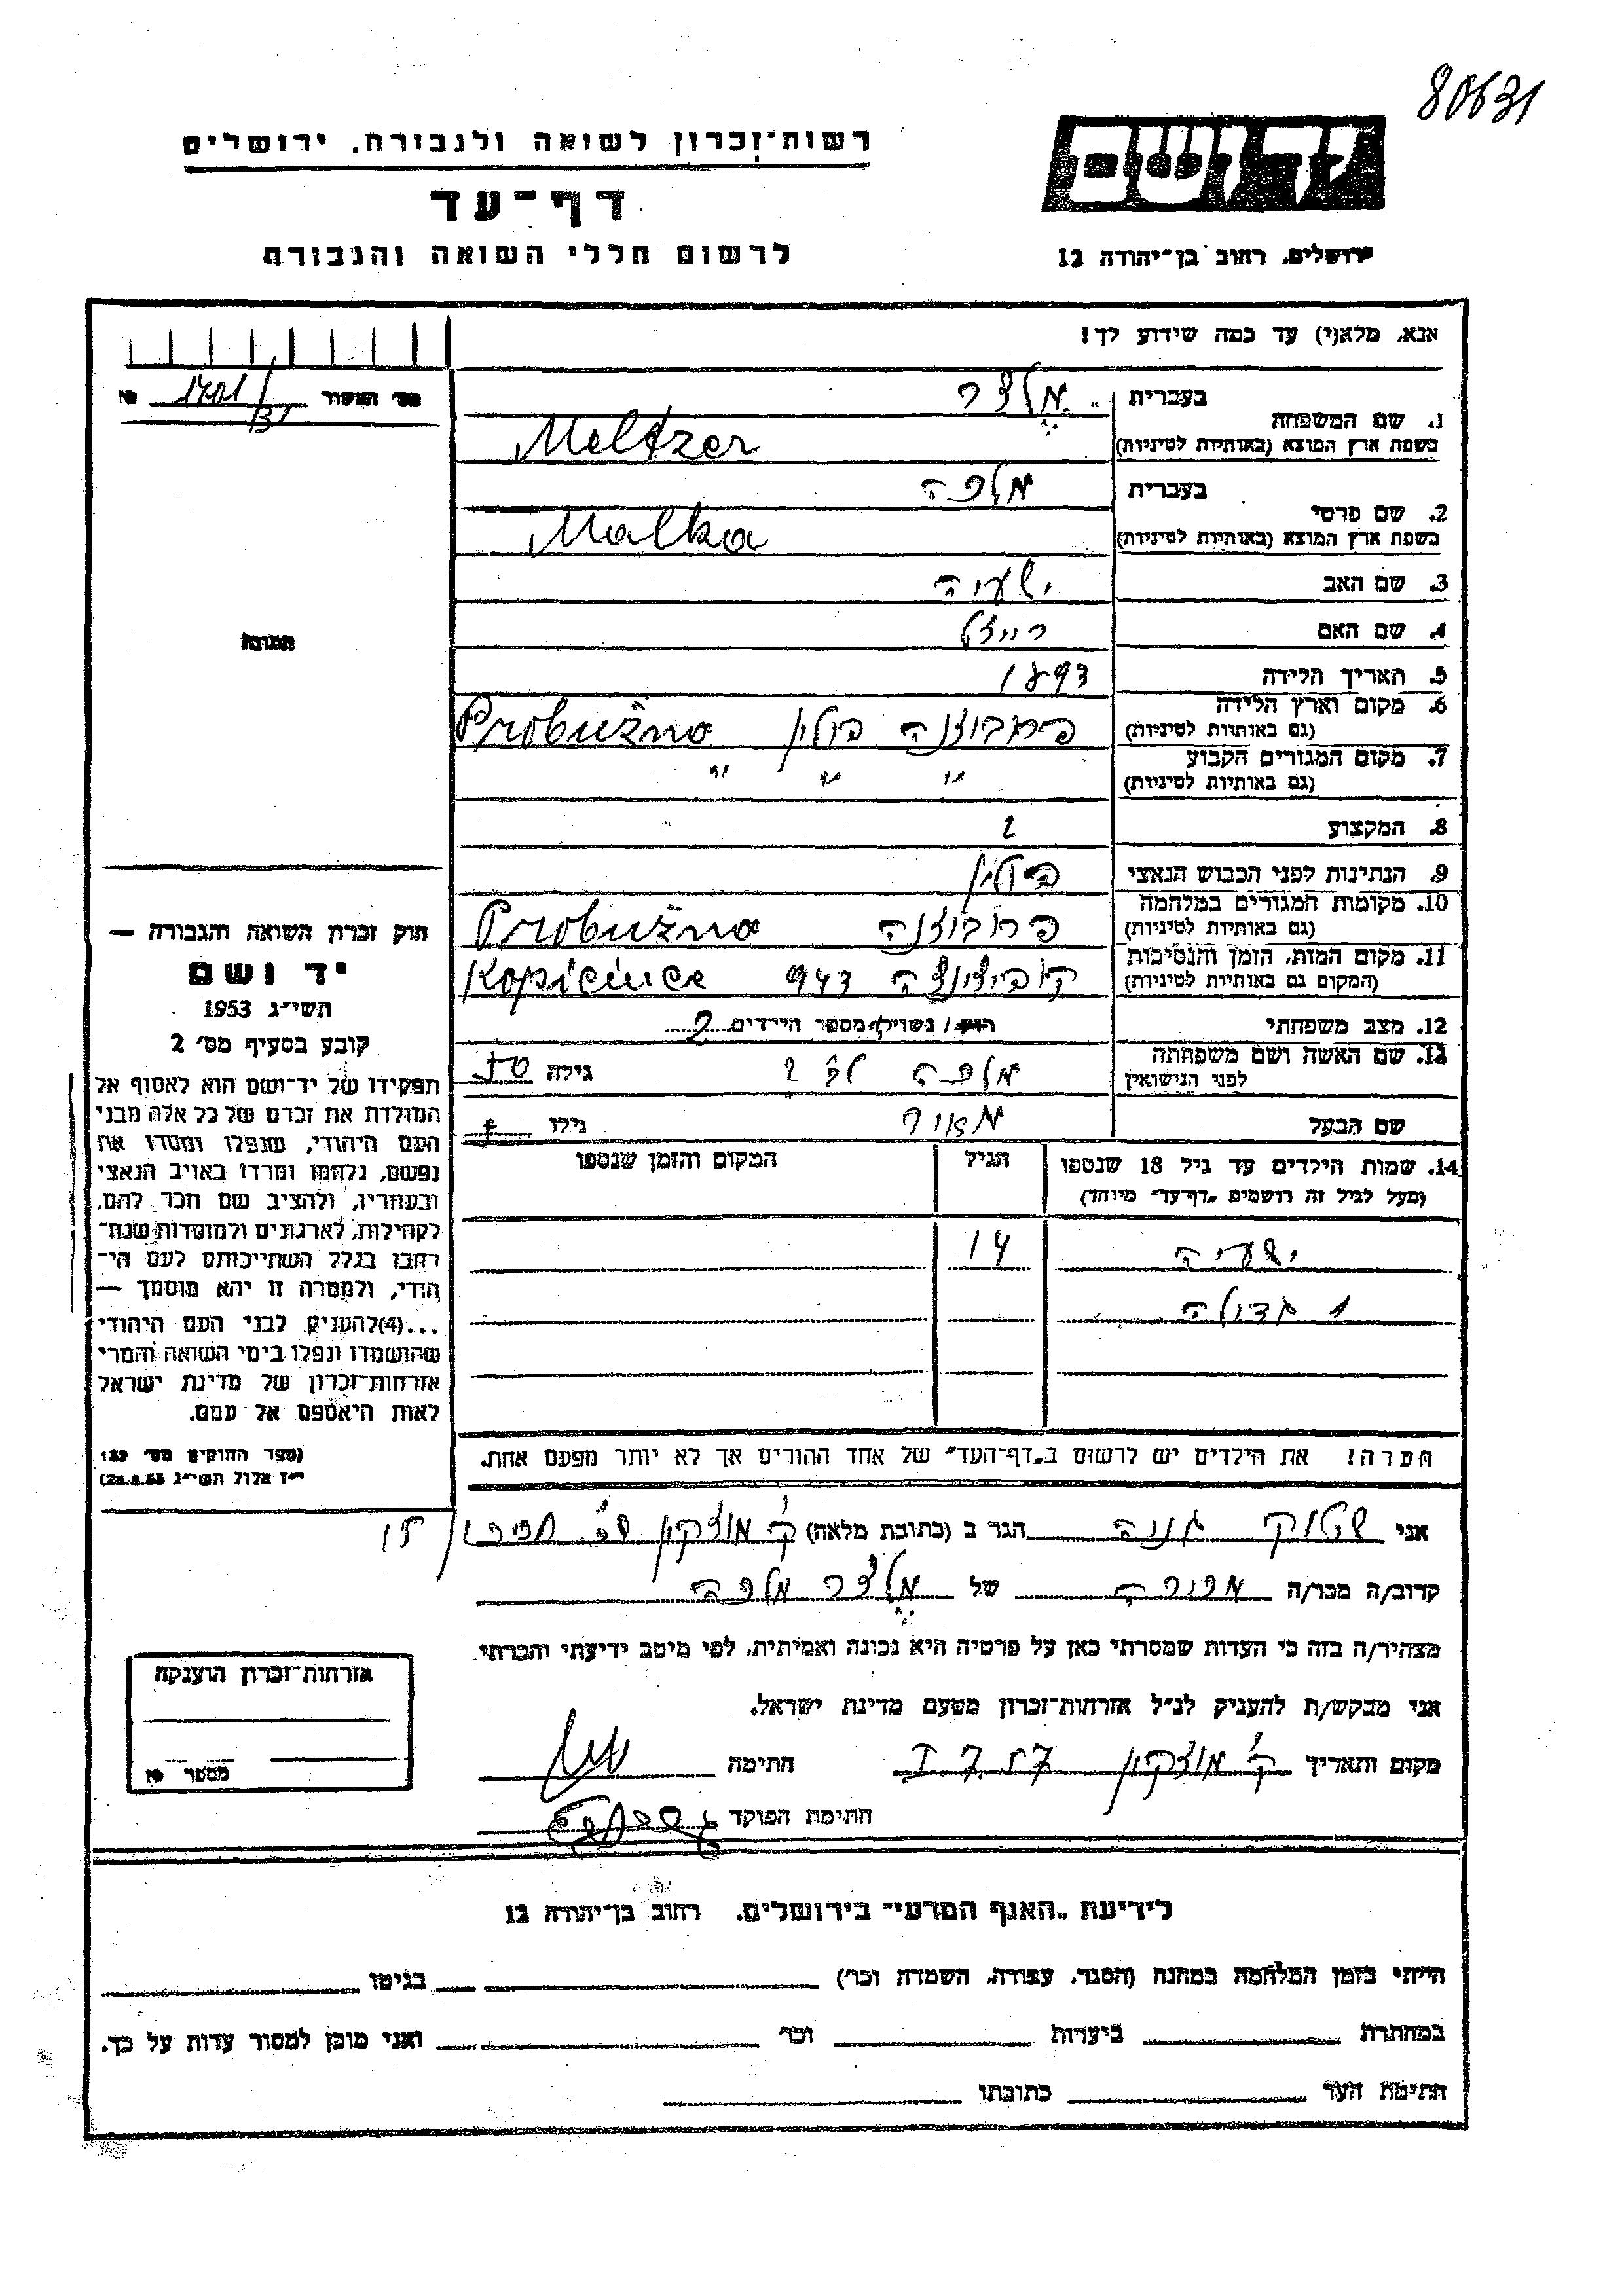 80631
רשות־זכרון לשואה ולגבורה, ירושלים
יד ושם
דף־עד
לרשום חללי השואה והגבורה
ירושלים, רחוב בן־יהודה 12
אנא, מלא(י) עד כמה שידוע לך!
1701/31
1. שם המשפחה
בעברית מלצר
בשפת ארץ המוצא (באותיות לטיניות) Meltzer
2. שם פרטי
בעברית מלכה
בשפת ארץ המוצא (באותיות לטיניות) Malka
3. שם האב ישעיה
4. שם האם רייזל
תמונה
5. תאריך הלידה 1893
6. מקום וארץ הלידה (גם באותיות לטיניות) פרובוזנה פולין Probužno
7. מקום המגורים הקבוע (גם באותיות לטיניות) " " "
8. המקצוע
9. הנתינות לפני הכבוש הנאצי פולין
10. מקומות המגורים במלחמה (גם באותיות לטיניות) פרובוזנה Probužno
11. מקום המות, הזמן והנסיבות (המקום גם באותיות לטיניות) 943 Kopicince
12. מצב משפחתי רווק/ נשוי/ מספר הילדים 2
13. שם האשה ושם משפחתה לפני הנישואין מלכה גילה 50
שם הבעל מאיר גילו
14. שמות הילדים עד גיל 18 שנספו הגיל המקום והזמן שנספו
(מעל לגיל זה רושמים "דף־עד" מיוחד)
ישעיה 14
1 גדולה
הערה! את הילדים יש לרשום ב"דף־העד" של אחד ההורים אך לא יותר מפעם אחת.
חוק זכרון השואה והגבורה —
יד ושם
תשי"ג 1953
קובע בסעיף מס' 2
תפקידו של יד־ושם הוא לאסוף אל
המולדת את זכרם של כל אלה מבני
העם היהודי, שנפלו ומסרו את
נפשם, נלחמו ומרדו באויב הנאצי
ובעוזריו, ולהציב שם וזכר להם,
לקהילות, לארגונים ולמוסדות שנח־
רבו בגלל השתייכותם לעם הי־
הודי, ולמטרה זו יהא מוסמך —
...(4)להעניק לבני העם היהודי
שהושמדו ונפלו בימי השואה והמרי
אזרחות־זכרון של מדינת ישראל
לאות היאספם אל עמם.
(ספר החוקים מס' 132
י"ז אלול תשי"ג 28.8.53)
אני שטוק הגר ב (כתובת מלאה) ק. מוצקין
קרוב/ה מכר/ה מכירה של מלצר מלכה
מצהיר/ה בזה כי העדות שמסרתי כאן על פרטיה היא נכונה ואמיתית, לפי מיטב ידיעתי והכרתי.
אני מבקש/ת להעניק לנ"ל אזרחות־זכרון מטעם מדינת ישראל.
מקום ותאריך ק. מוצקין חתימה
חתימת הפוקד
אזרחות־זכרון הוענקה
מספר
לידיעת "האגף המדעי" בירושלים, רחוב בן־יהודה 12
הייתי בזמן המלחמה במחנה (הסגר, עבודה, השמדה וכר') בגיטו
במחתרת ביערות וכר' ואני מוכן למסור עדות על כך.
חתימת העד כתובתו